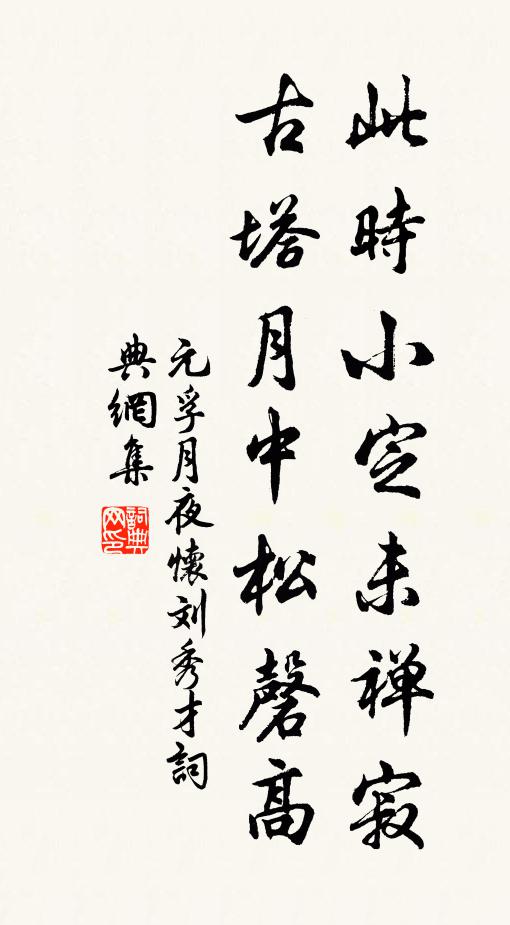 此時小定未禅寂
古塔月中松磬高
元孚月夜懷刘秀才詞
典網集
詞典网印